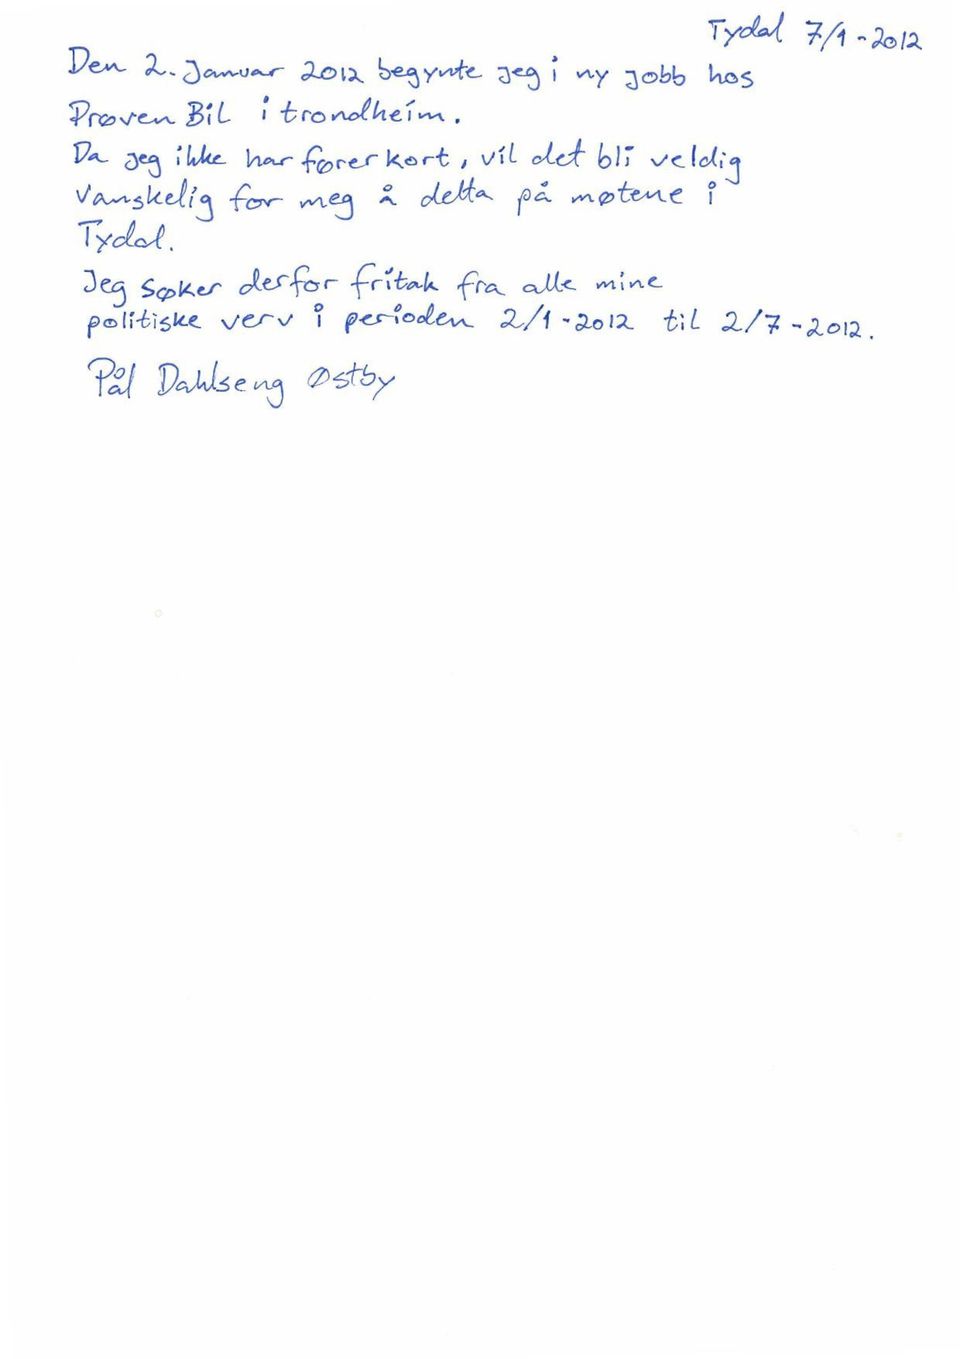 Tydal 7/1-2012
Den 2. Januar 2012 begynte jeg i ny jobb hos
Prøven Bil i trondheim.
Da jeg ikke har førerkort, vil det bli veldig
Vanskelig for meg å delta på møtene i
Tydal.
Jeg søker derfor fritak fra alle mine
politiske verv i perioden 2/1-2012 til 2/7-2012.
Pål Dahlseng Østby